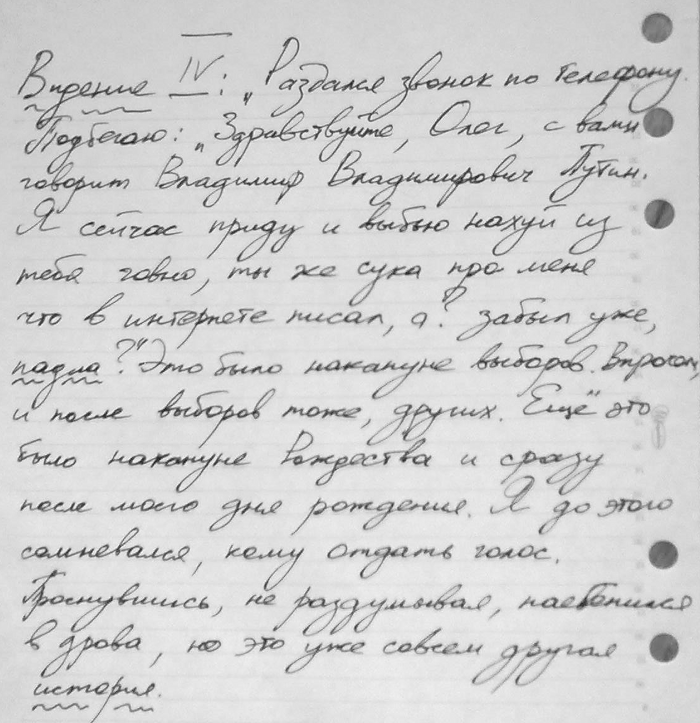 Видение IV: „Раздался звонок по телефону.
Подбегаю: „Здравствуйте, Олег, с вами
говорит Владимир Владимирович Путин.
Я сейчас приду и выбью нахуй из
тебя говно, ты же сука про меня
что в интернете писал, а? забыл уже,
падла?" Это было накануне выборов. Впрочем,
и после выборов тоже, других. Ещё это
было накануне Рождества и сразу
после моего дня рождения. Я до этого
сомневался, кому отдать голос.
Проснувшись, не раздумывая, наебенился
в дрова, но это уже совсем другая
история.